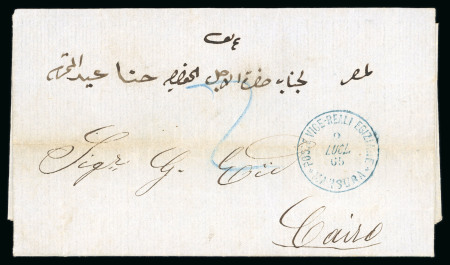 لمصر لجناب حضرة الاجل الخواجه حنا عيد المحترم
2
POSTE VICE-REALI EGIZIANE
2
LUGL
65
MANSURA
Sigr. G. Eid
Cairo